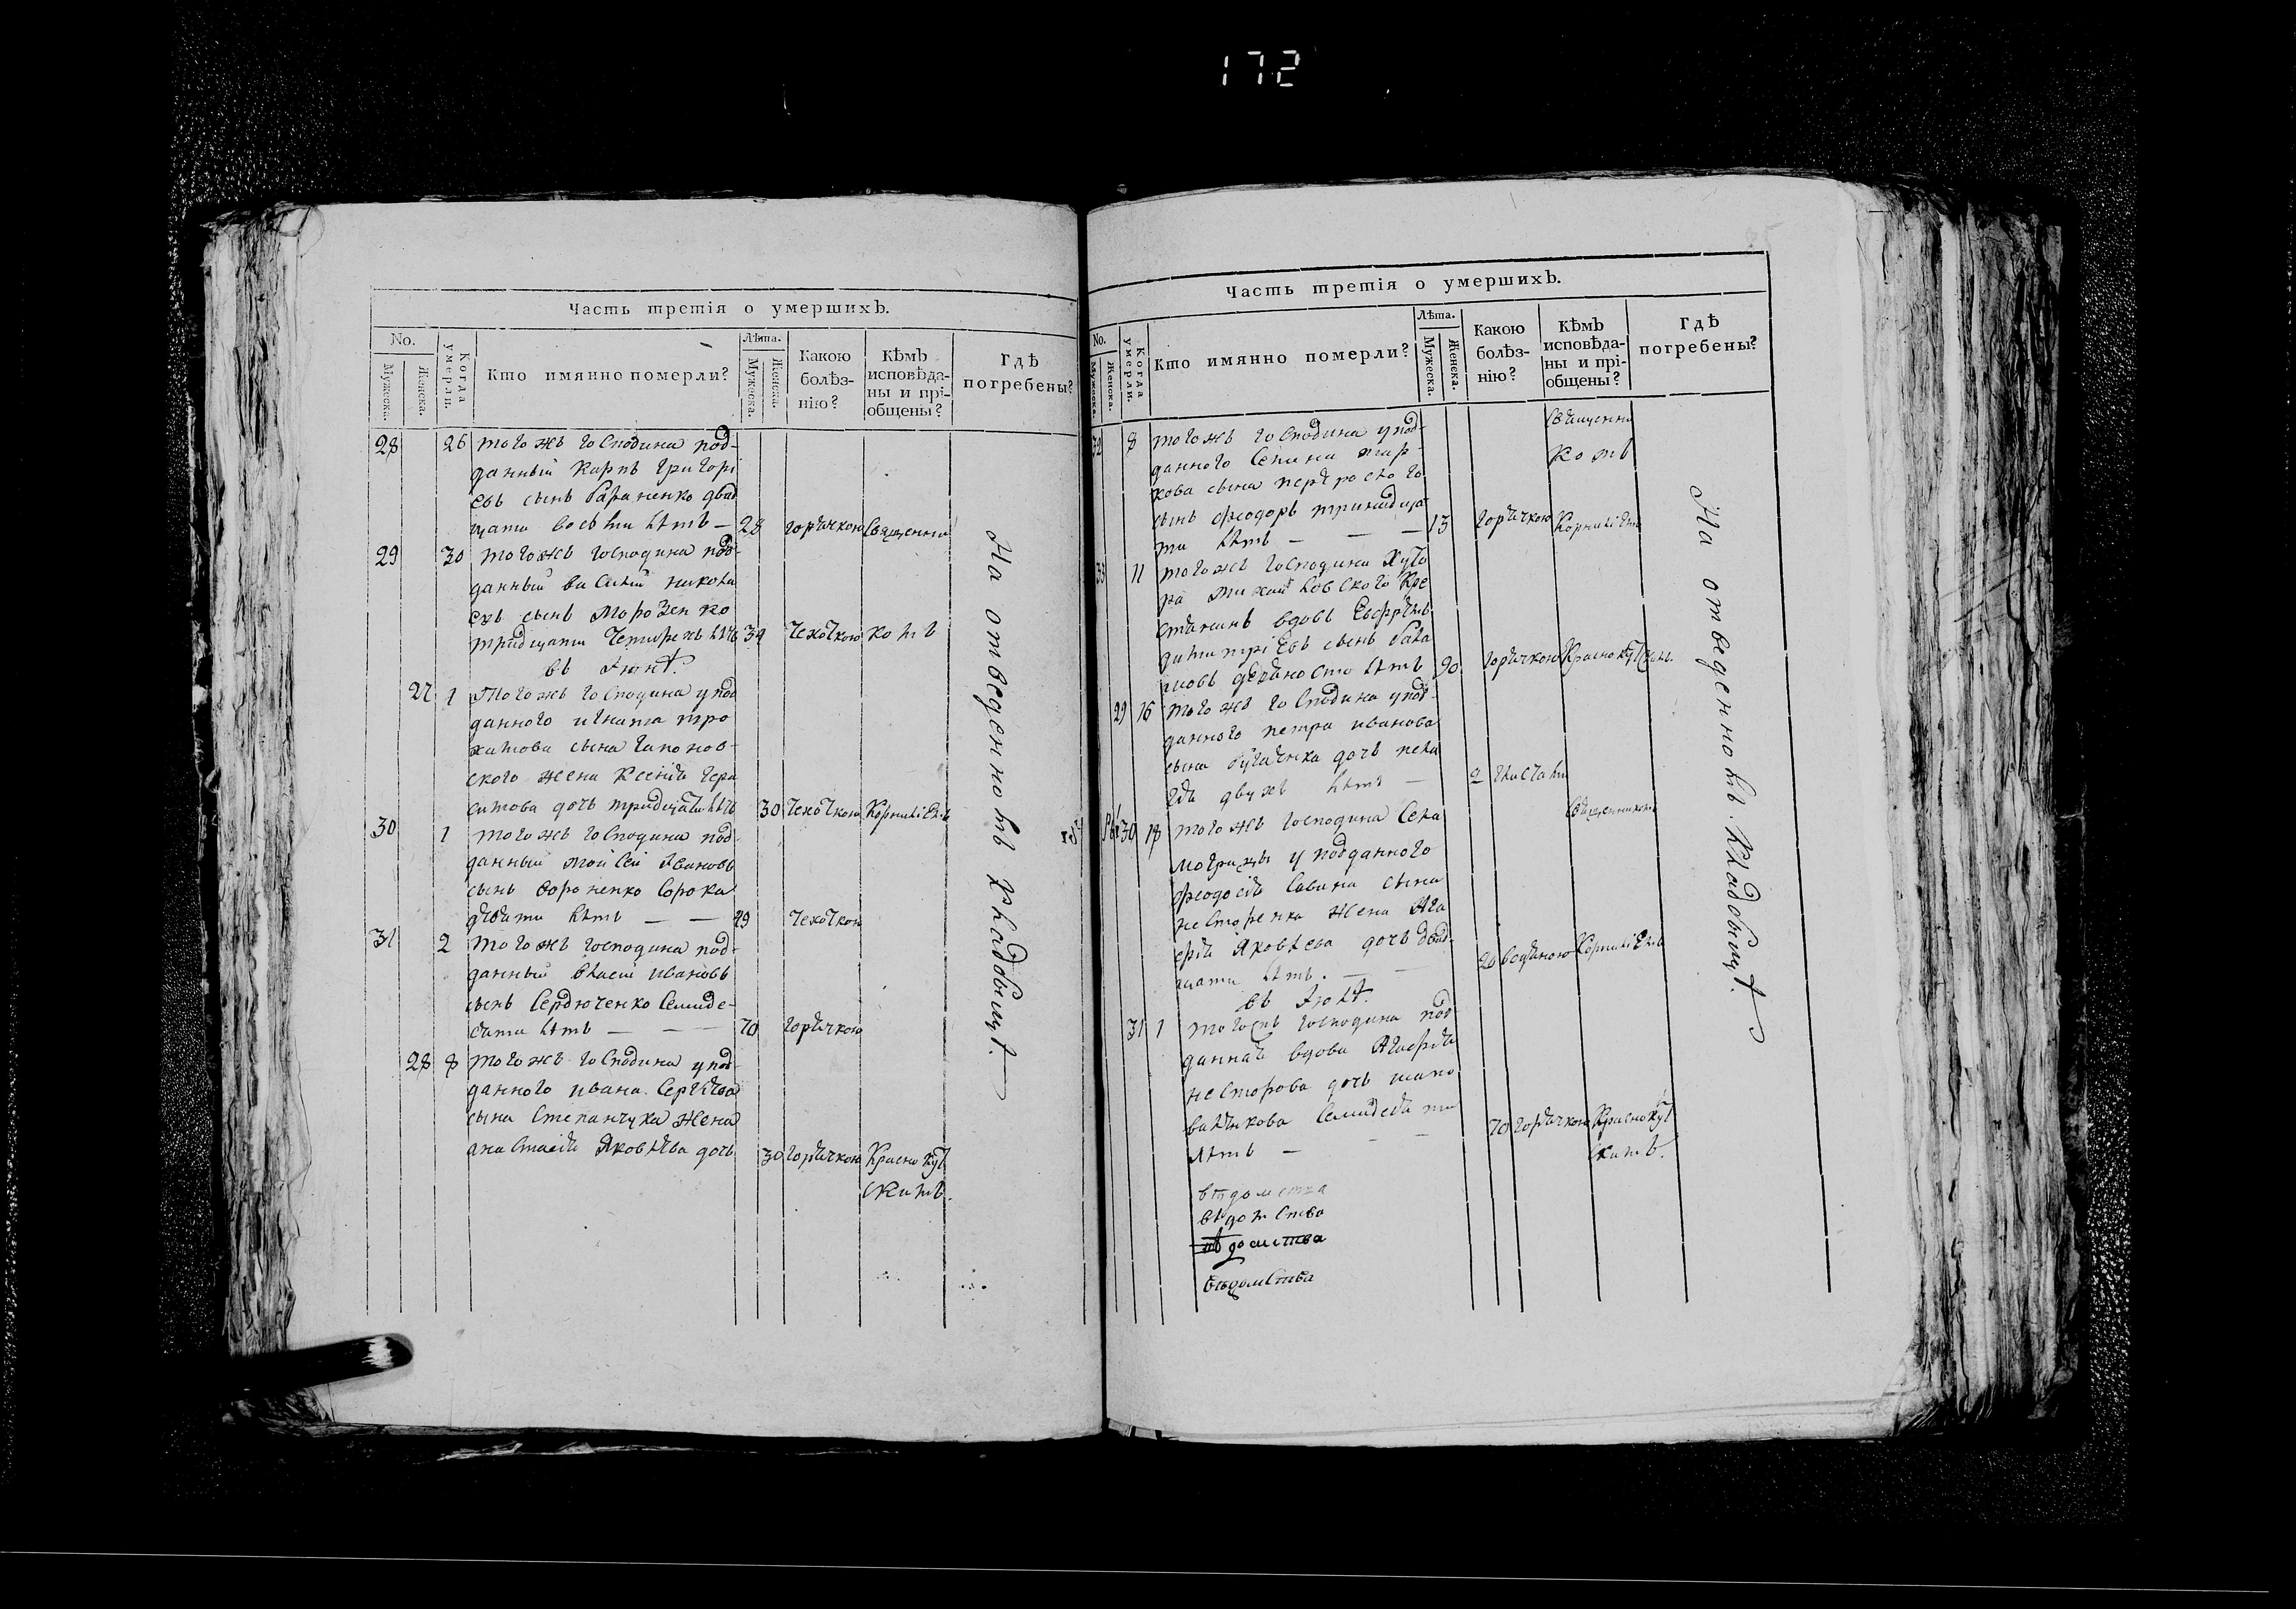 172
Часть третія о умершихъ.
No.
Мужеска.
Женска.
Когда умерли.
Кто имянно померли?
Лѣта.
Мужеска.
Женска.
Какою болѣз-
нію?
Кѣмъ
исповѣда-
ны и прі-
общены?
Гдѣ
погребены?
28 26 того жъ господина под-
данный Карпъ Григорі
евъ сынъ двад
цати восьми лѣтъ — 28 горячкою Священни
29 30 того жъ господина под-
данный Василий Никола
евъ сынъ Морозенко
тридцати четырехъ лѣтъ 34 чехоткою комъ
въ Июнѣ.
27 1 Того жъ господина у под
данного Игната Тро
химова сына Гапонов-
ского жена Ксенія Гера
симова дочь тридцати лѣтъ 30 чехоткою Корниліемъ
30 1 того жъ господина под-
данный Моисей Ивановъ
сынъ Вороненко сорока
девяти лѣтъ — — 49 чехоткою
31 2 того жъ господина под-
данный Власий Ивановъ
сынъ Сердюченко семиде-
сяти лѣтъ — — 70 горячкою
28 8 того жъ господина у под-
данного Ивана Сергѣева
сына Степанчука жена
Анастасія Яковлѣва дочь 30 горячкою Краснокут
скимъ.
На отведенномъ кладбищѣ.
Часть третія о умершихъ.
No.
Мужеска.
Женска.
Когда умерли.
Кто имянно померли?
Лѣта.
Мужеска.
Женска.
Какою
болѣз-
нію?
Кѣмъ
исповѣда-
ны и прі-
общены?
Гдѣ
погребены?
Священни
комъ
32 8 того жъ господина у под-
данного
кова сына
сынъ Феодоръ тринадца
ти лѣтъ — — — 13 горячкою Корниліемъ
33 11 того жъ господина Хуто
ра Михайловского Кре
стянинъ вдовъ Ефремъ
Димитріевъ сынъ
девяносто лѣтъ 90 горячкою Краснокутскимъ
29 16 того жъ господина у под-
данного Петра Иванова
сына дочь Пела
гія двухъ лѣтъ — 2 глистами
30 18 того жъ господина Села Священникомъ
у подданного
Феодосія Савина сына
Несторенка жена Ага
фія Яковлева дочь двад-
цати лѣтъ. — — 20 Корниліемъ
въ Июлѣ.
31 1 того жъ господина под-
данная вдова Агафія
Несторова дочь Шапо
валенкова семидесяти
лѣтъ — — — 70 горячкою Краснокут
скимъ.
вѣдомства
вѣдомства
вѣдомства
вѣдомства
На отведенномъ кладбищѣ.